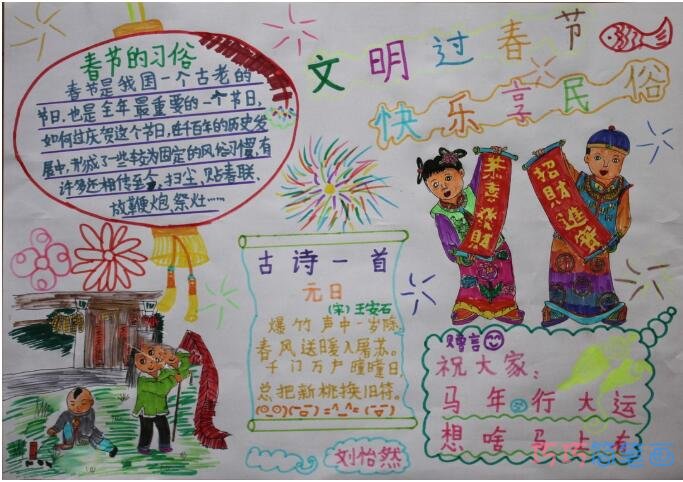 春节的习俗
春节是我国一个古老的
节日,也是全年最重要的一个节日,
如何过庆贺这个节日,在千百年的历史发
展中,形成了一些较为固定的风俗习惯,有
许多还相传至今,扫尘、贴春联、
放鞭炮、祭灶……
文明过春节
快乐享民俗
恭喜發財
招財進寶
古诗一首
元日
(宋)王安石
爆竹声中一岁除
春风送暖入屠苏。
千门万户曈曈日
总把新桃换旧符。
赠言
祝大家:
马年行大运
想啥马上有
刘怡然